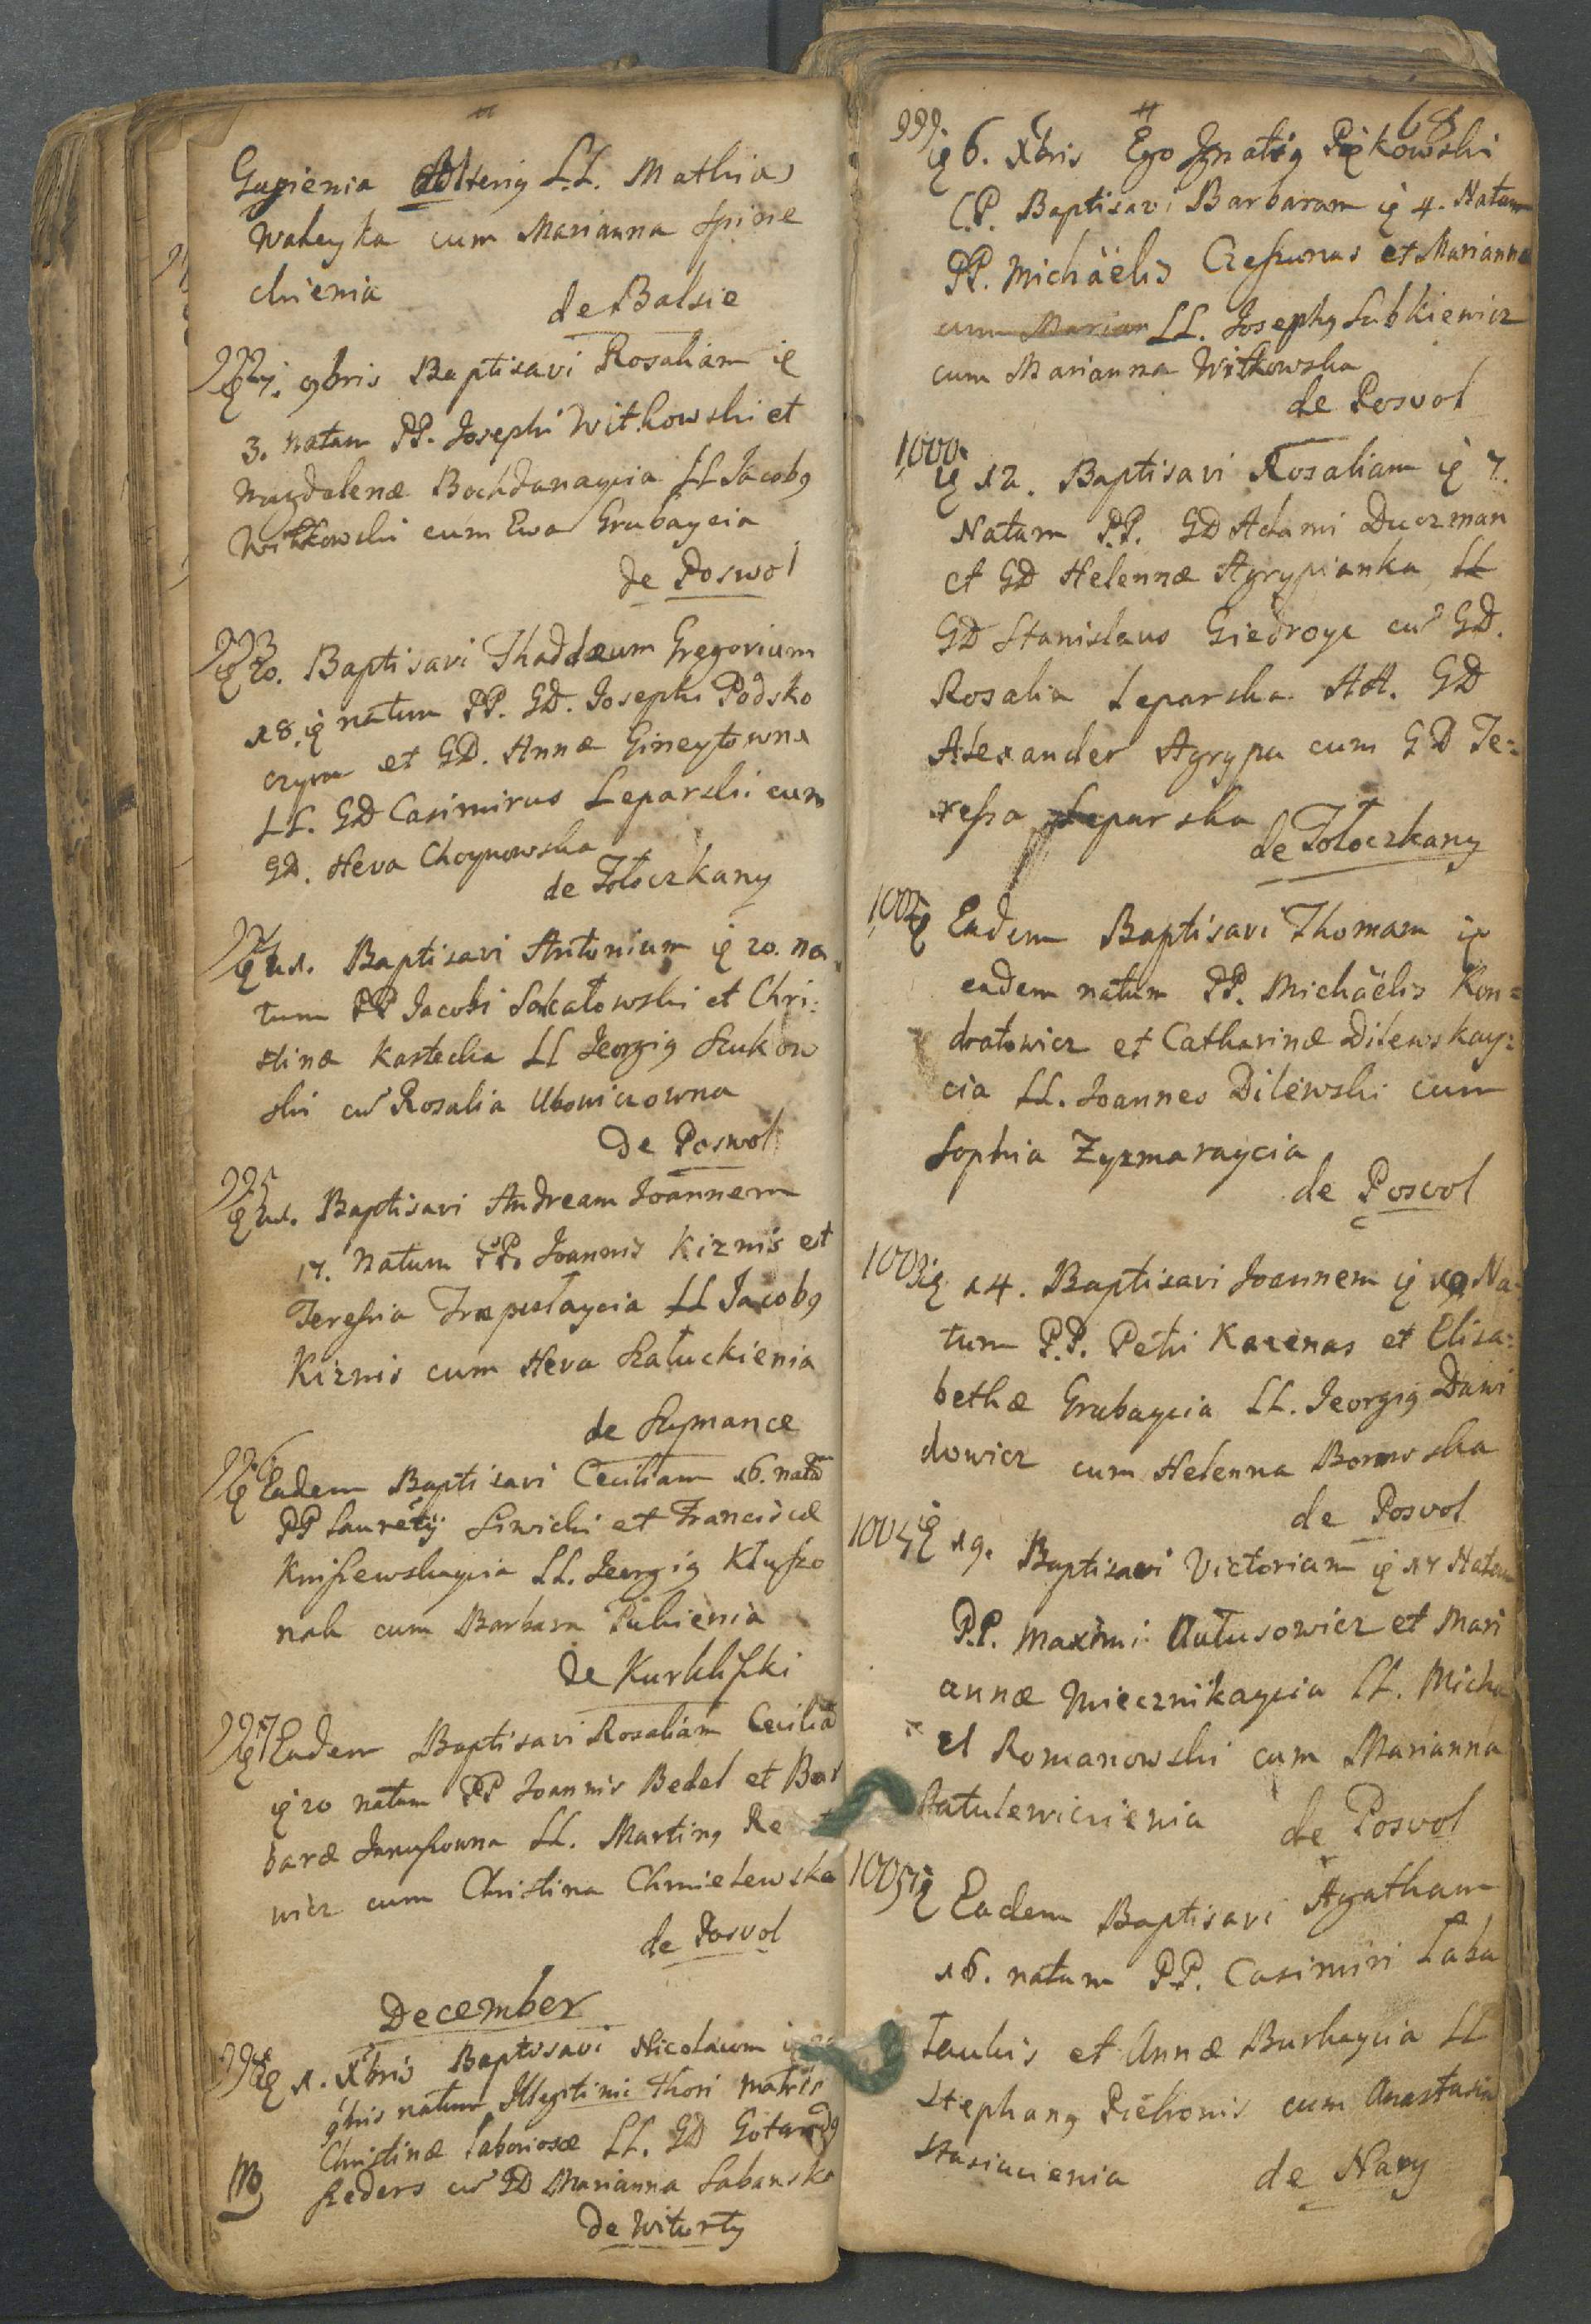 Gupienia LL. Mathias
Waleyka cum Marianna Spine
chienia
de Balsie
992
7. 9bris Baptisavi Rosaliam ię
3. natam PP. Josephi Witkowski et
Magdalenæ Bochdanaycia LL Jacobg
Witkowski cum Ewa Grubaycia
de Poswol
993
ię 20. Baptisavi Thaddæum Gregorium
18. ię natum PP. GD. Josephi Podsko
czym et GD. Annæ Gineytowna
LL. GD Casimirus Leparski cum
GD. Heva Choynowska
de Tołoczkany
ię 21. Baptisavi Antonium ię 20. na
tum PP Jacobi Sokałowski et Chri:
stinæ Kastecka LL Georgig Szukow
ski cu Rosalia Ubowiczowna
de Poswol
995
ię 21. Baptisavi Andream Joannem
17. Natum PP. Joannis Kiznis et
Teressia Trepułaycia LL Jacobg
Kiznis cum Heva Szałuckienia
de Szymance
996
ię Eadem Baptisavi Ceciliam 16. nata
PP Laurety Siwicki et Franciscæ
Kniszewskaycia LL. Georgig Kłyszo
nak cum Barbara Pukienia
de Kurkliszki
997
ię Eadem Baptisavi Rosaliam Cecilia
ię 20 natam PP Joannis Bedel et Bar
baræ Januszowna LL. Marting Re
wicz cum Christina Chmielewska
de Posvol
December
998
ię 1. Xbris Baptisavi Nicolaum
9bris natum Illegitimi thori matris
Christinæ laboriosæ LL. GD Gotardg
Reders cu GD Marianna Labanska
de Witurty
68
999
ię 6. Xbris Ego Ignatig Piękowski
C.P. Baptisavi Barbaram ię 4. Natam
PP. Michäelis Czeszunas et Marianne
cum Marian LL. Josephg Lubkiewicz
cum Marianna Witkowska
de Posvol
1000.
ię 12. Baptisavi Rosaliam ię 7.
Natam P.P. GD Adami Duczman
et GD Helennæ Agrypianka LL
GD Stanislaus Giedroyc cu GD.
Rosalia Leparska AA. GD
Alexander Agrypa cum GD Te:
ressa Leparska
de Tołoczkany
1002
ię Eadem Baptisavi Thomam ię
eadem natum PP. Michäelis Kon=
dratowicz et Catharinæ Dilewskay:
cia LL. Joannes Dilewski cum
Sophia Zyzmaraycia
de Posvol
1003
ię 14. Baptisavi Joannem ię Na-
tum P.P. Petri Kazenas et Elisa:
bethæ Grubaycia LL. Georgig Dawi
dowicz cum Helenna Borowska
de Posvol
1004
ię 19. Baptisavi Victoriam ię 17 Natam
P.P. Maximi Autusowicz et Mari
annæ Miecznikaycia LL. Micha
el Romanowski cum Marianna
Ratulewiczienia
de Posvol
1005
ię Eadem Baptisavi Agatham
16. natam P.P. Casimiri Łaba
taukis et Annæ Burkaycia LL
Stephang Pietronis cum Anastasia
Stasiucienia
de Nary